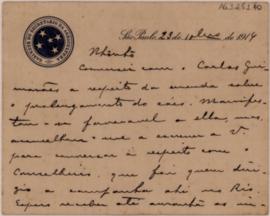 São Paulo, 23 de de 1914
Conversei com o Carlos Gui-
marães a respeito da emenda sobre
o prolongamento do caes. Manifes-
tou-se favoravel a ella, mas,
aconselhou-me a escrever a V.
para conversar a respeito com o
Conselheiro, que foi quem diri-
gio a campanha ahi no Rio.
Espero receber até amanhã as in-